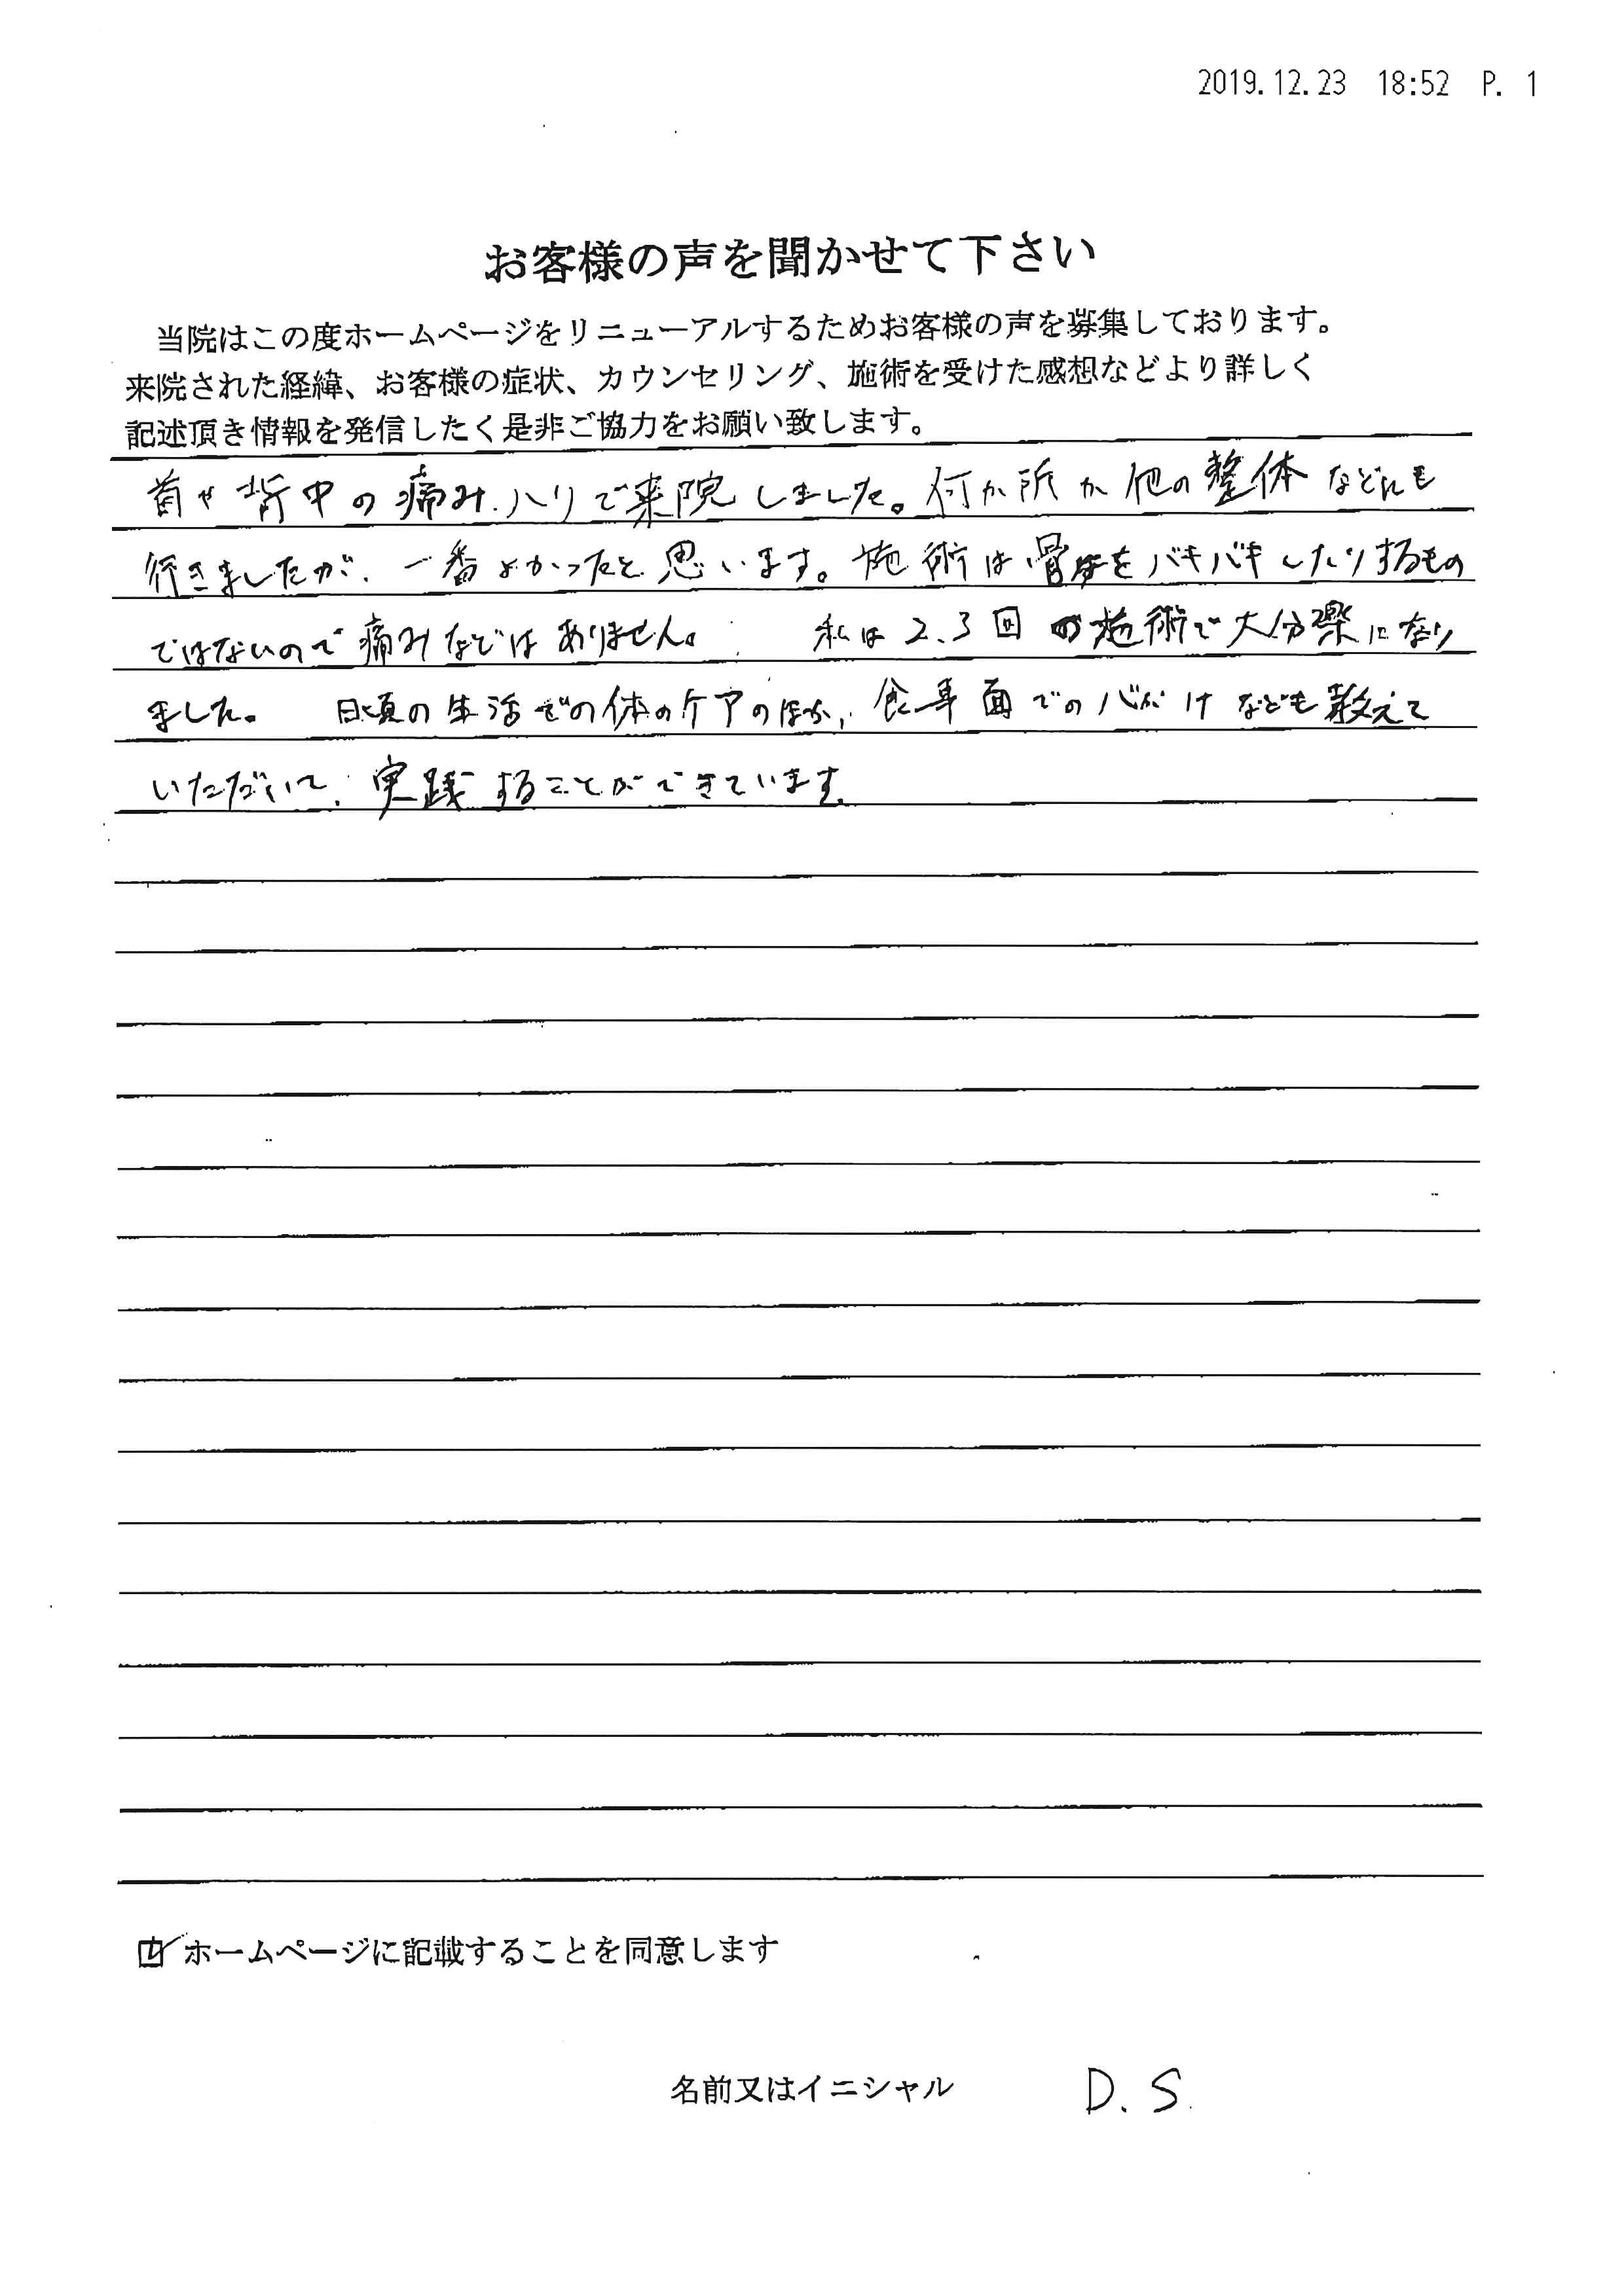 2019.12.23 18:52 P. 1
お客様の声を聞かせて下さい
当院はこの度ホームページをリニューアルするためお客様の声を募集しております。
来院された経緯、お客様の症状、カウンセリング、施術を受けた感想などより詳しく
記述頂き情報を発信したく是非ご協力をお願い致します。
首や背中の痛み、ハリで来院しました。何か所か他の整体などにも
行きましたが、一番よかったと思います。施術は骨をバキバキしたりするもの
ではないので痛みなどはありません。 私は2、3回の施術で大分楽になり
ました。 日頃の生活での体のケアのほか、食事面での心がけなども教えて
いただいて、実践することができています。
ホームページに記載することを同意します
名前又はイニシャル D.S.